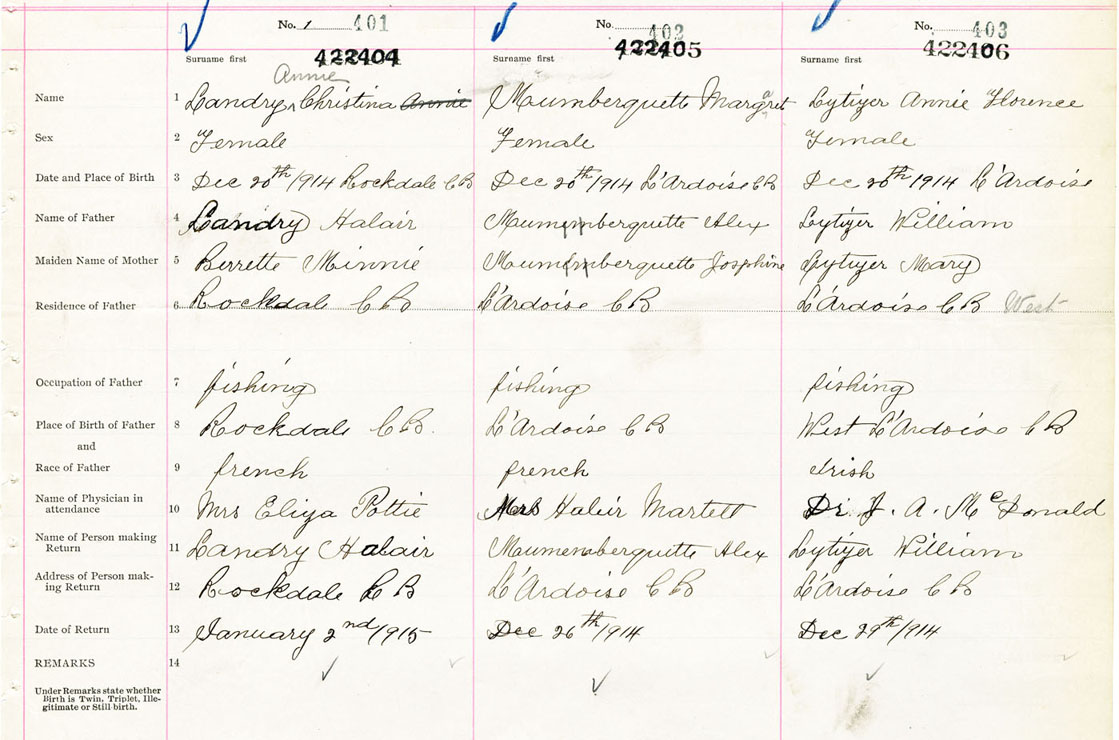 No. 1 401
No. 402
No. 403
422404
422405
422406
Surname first
Surname first
Surname first
Annie
Name 1 Landry, Christina Annie Maumberquette Margaret Lytizer Annie Florence
Sex 2 Female Female Female
Date and Place of Birth 3 Dec 20th/1914 Rockdale CB Dec 20th/1914 L'Ardoise CB Dec 20th 1914 L'Ardoise
Name of Father 4 Landry Halair Alex Lytizer William
Maiden Name of Mother 5 Berrette Minnie Josphine Lytizer Mary
Residence of Father 6 Rockdale CB L'Ardoise CB L'Ardoise CB West
Occupation of Father 7 fishing fishing fishing
Place of Birth of Father 8 Rockdale CB. L'Ardoise CB West L'Ardoise CB
and
Race of Father 9 french french Irish
Name of Physician in
attendance 10 Mrs Eliza Pottie Mrs Halair Martell Dr. J. A. McDonald
Name of Person making
Return 11 Landry Halair Alex Lytizer William
Address of Person mak-
ing Return 12 Rockdale CB L'Ardoise CB L'Ardoise CB
Date of Return 13 January 2nd/1915 Dec 26th/1914 Dec 29th/1914
REMARKS 14
Under Remarks state whether
Birth is Twin, Triplet, Ille-
gitimate or Still-birth.